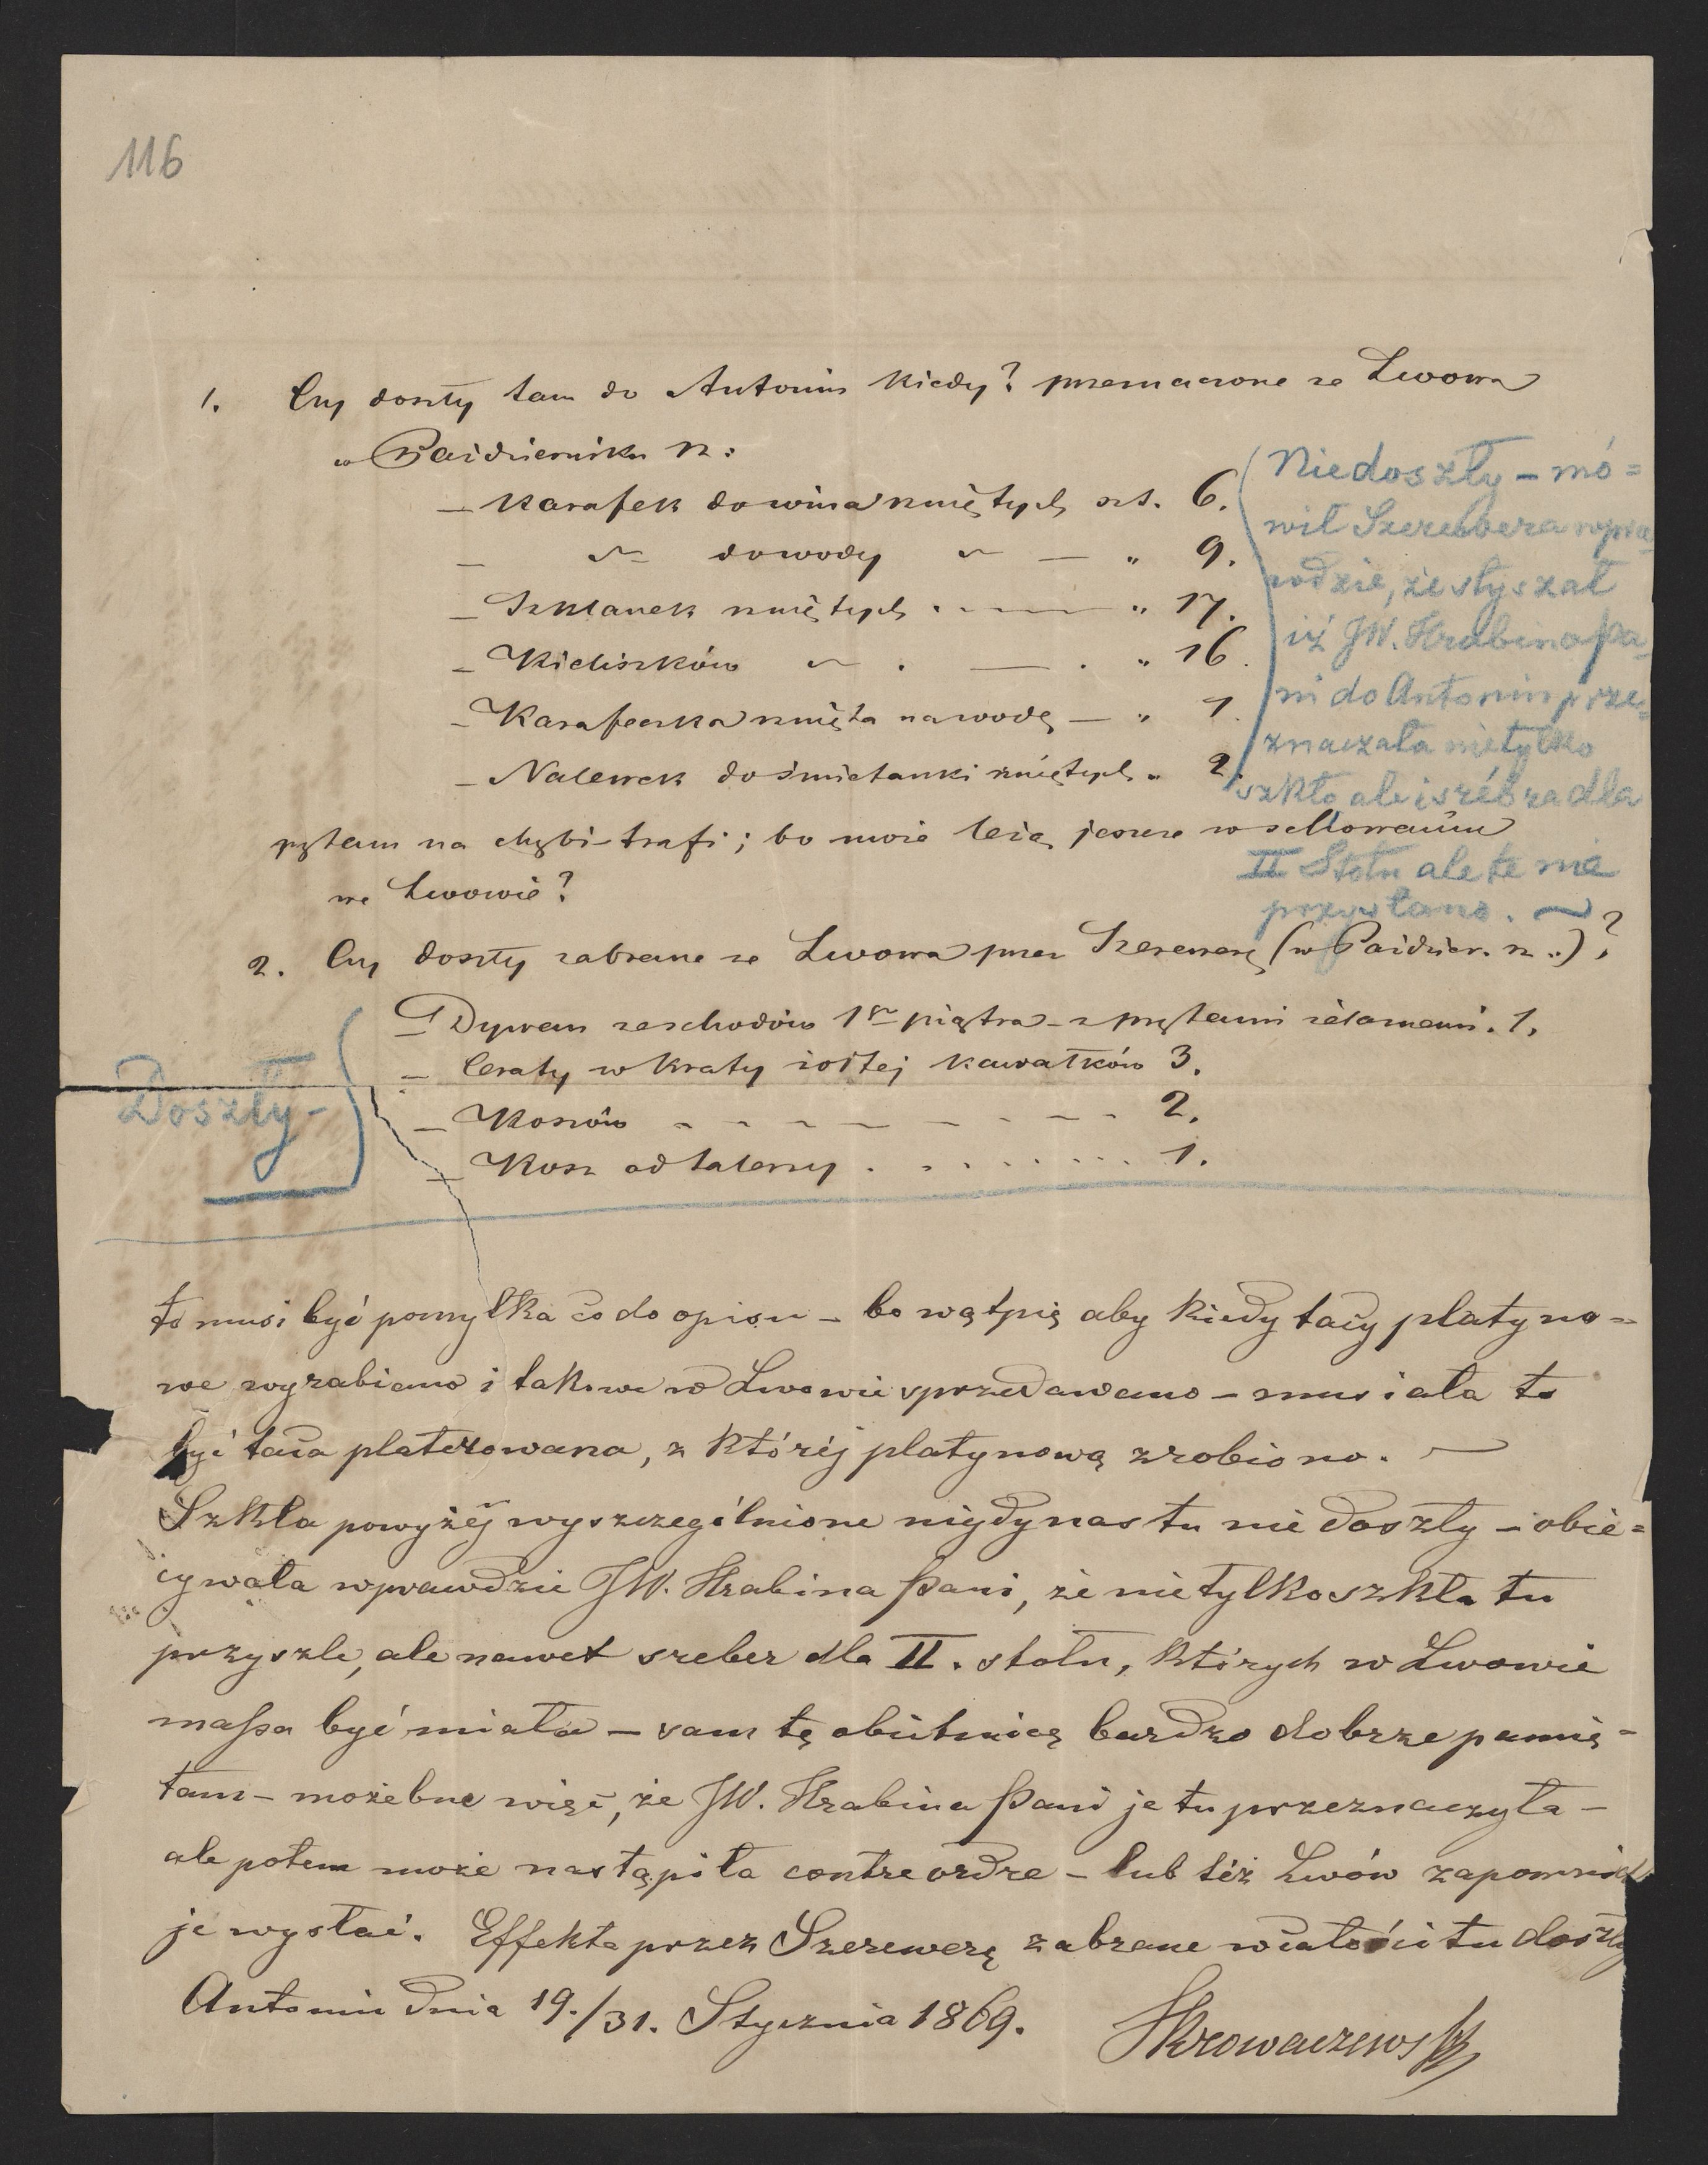 116
1. Czy doszły tam do Antonin kiedy? przeznaczone ze Lwowa
w Październiku r:
— Karafek do wina rzniętych szt. 6.
— ~ do wody ~ — " 9.
— Szklanek rzniętych . — " 17.
— Kieliszków ~ . — . " 16.
— Karafeczka rznięta na wodę — " 1.
— Nalewek do śmietanki rzniętych " 2.
Niedoszły – mó=
wił Szerewera wpra=
wdzie, że słyszał
iż JW. Hrabina Pa=
ni do Antonin prze=
znaczała nietylko
szkło ale i srébra dla
II Stołu ale te nie
przysłano. ~
pytam na chybi-trafi; bo może leżą jeszcze w schowaniu
we Lwowie?
2. Czy doszły zabrane ze Lwowa przez Szerewerę (w Paździer. r..)?
— Dywan ze schodów 1go piętra – z prętami żelaznemi. 1.
— Ceraty w kraty żółtej kawałków 3.
— Koszów - - - - - - - - 2.
— Kosz od talerzy . . . . . . . 1.
Doszły –
to musi być pomyłka co do opisu – bo wątpię aby kiedy tacy platyno=
we wyrabiano i takowe w Lwowie sprzedawano – musiała to
być taca platerowana, z któréj platynową zrobiono. —
Szkła powyżéj wyszczególnione nigdy nas tu nie doszły – obie=
cywała wprawdzie JW. Hrabina Pani, że nietylko szkła tu
przyszle, ale nawet sreber dla II. stołu, których w Lwowie
massa być miała – sam tę obietnicę bardzo dobrze pamię-
tam – możebne więc, że JW. Hrabina Pani je tu przeznaczyła –
ale potem może nastąpiła contreordre – lub téż Lwów zapomniał
je wysłać. Effekta przez Szerewerę zabrane w całości tu doszły
Antonin dnia 19./31. Stycznia 1869.
Skrowaczewski